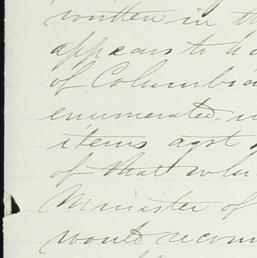 written in th
appears to ha
of Columbia
enumerated
items agst
of that whi
Minister of
would recom